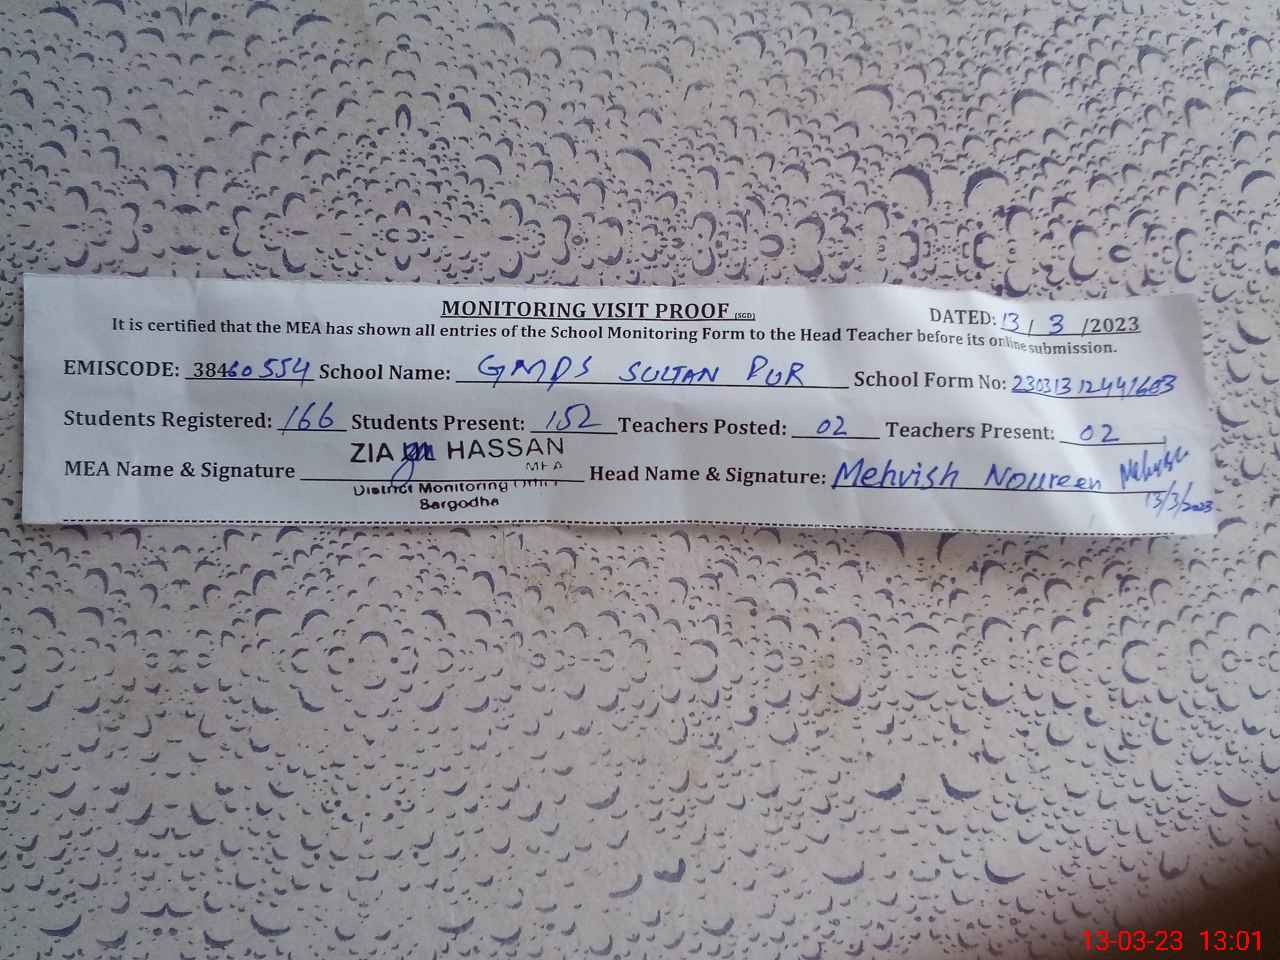 MONITORING VISIT PROOF (SGD)
DATED: 13 / 3 /2023
It is certified that the MEA has shown all entries of the School Monitoring Form to the Head Teacher before its online submission.
EMISCODE: 38460554 School Name: GMPS SULTAN PUR School Form No:
Students Registered: 166 Students Present: 152 Teachers Posted: 02 Teachers Present: 02
MEA Name & Signature ZIA HASSAN Head Name & Signature: Mehvish Noureen
MEA
District Monitoring Office
Sargodha
13/3/2023
13-03-23 13:01